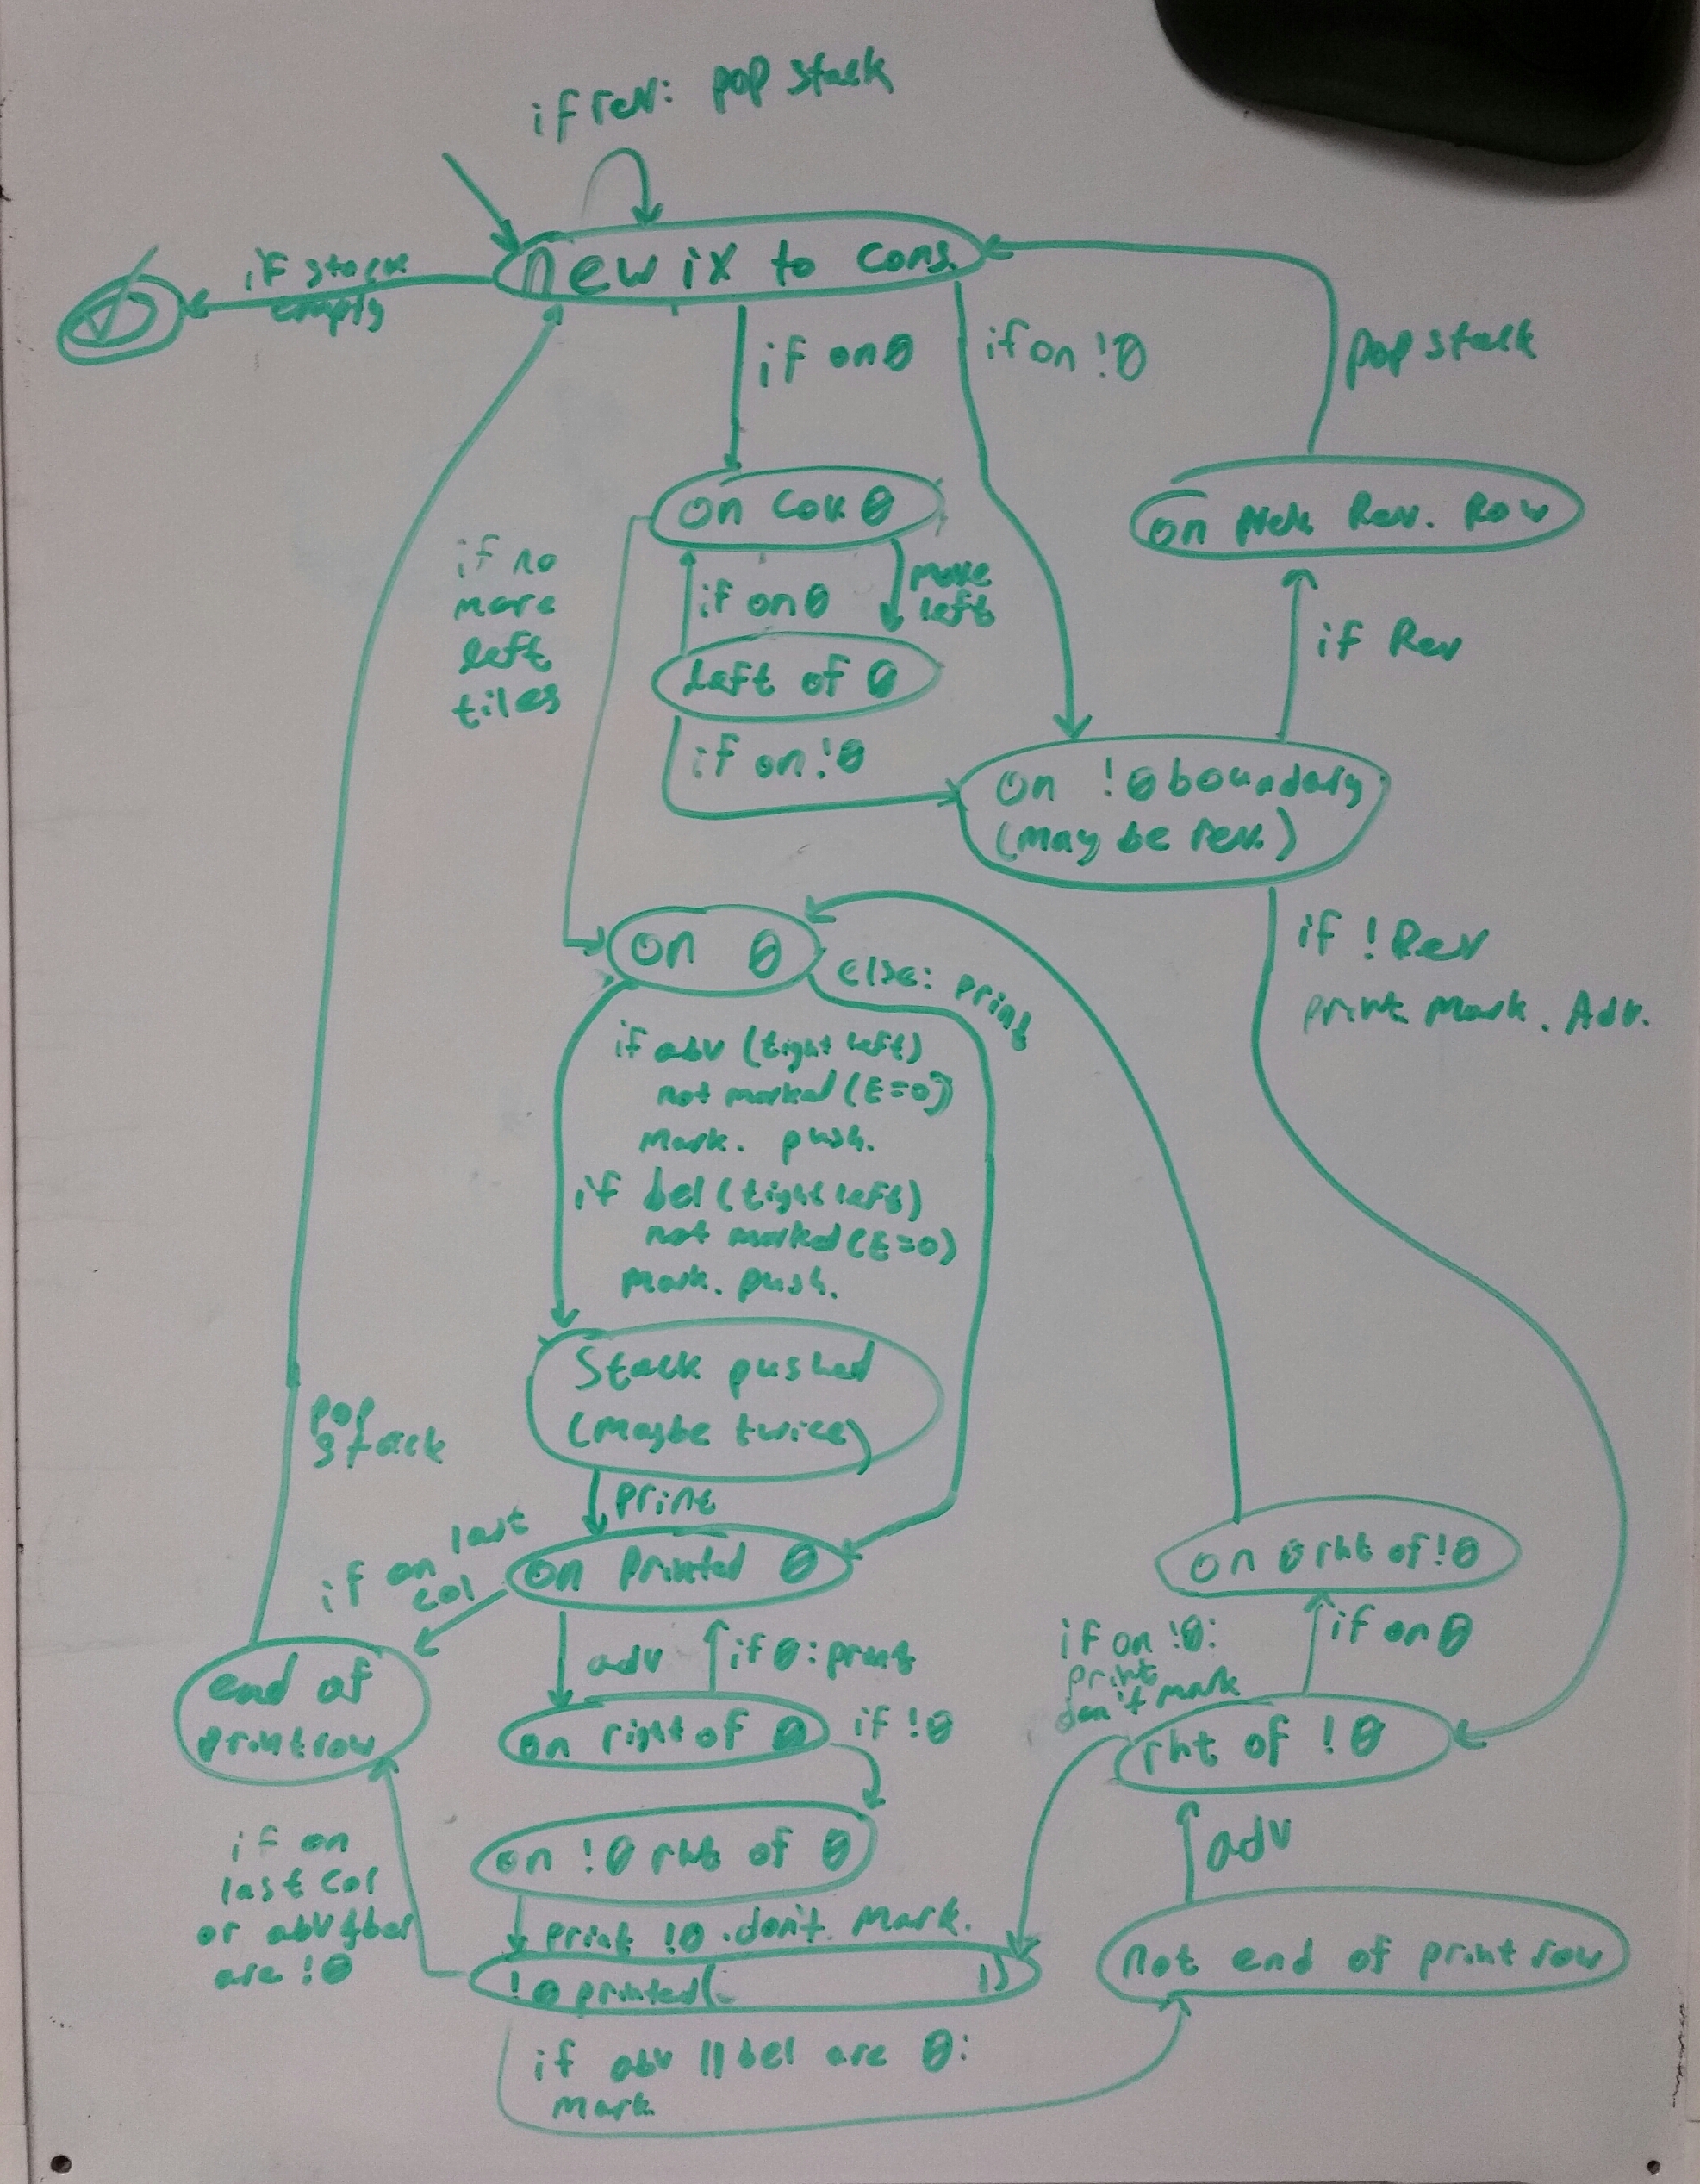 if rev: pop stack
new ix to cons.
if stack
empty
if on 0
if on !0
pop stack
on cov 0
on prev. Rev. Row
if no
more
left
tiles
if on 0
move
left
if Rev
left of 0
if on !0
on !0 boundary
(may be rev.)
on 0
else: print
if !Rev
print Mark. Adv.
if abv (tight left)
not marked (E=0)
Mark. push.
if bel (tight left)
not marked (E=0)
Mark. push.
Stack pushed
(maybe twice)
pop
stack
print
if on last
col
on printed 0
on 0 rht of !0
adv
if 0: print
if on !0:
print
don't mark
if on 0
end of
print row
on right of 0
if !0
rht of !0
on !0 rht of 0
adv
if on
last col
or abv & bel
are !0
print !0 . don't Mark.
!0 printed(
!)
not end of print row
if abv || bel are 0:
mark